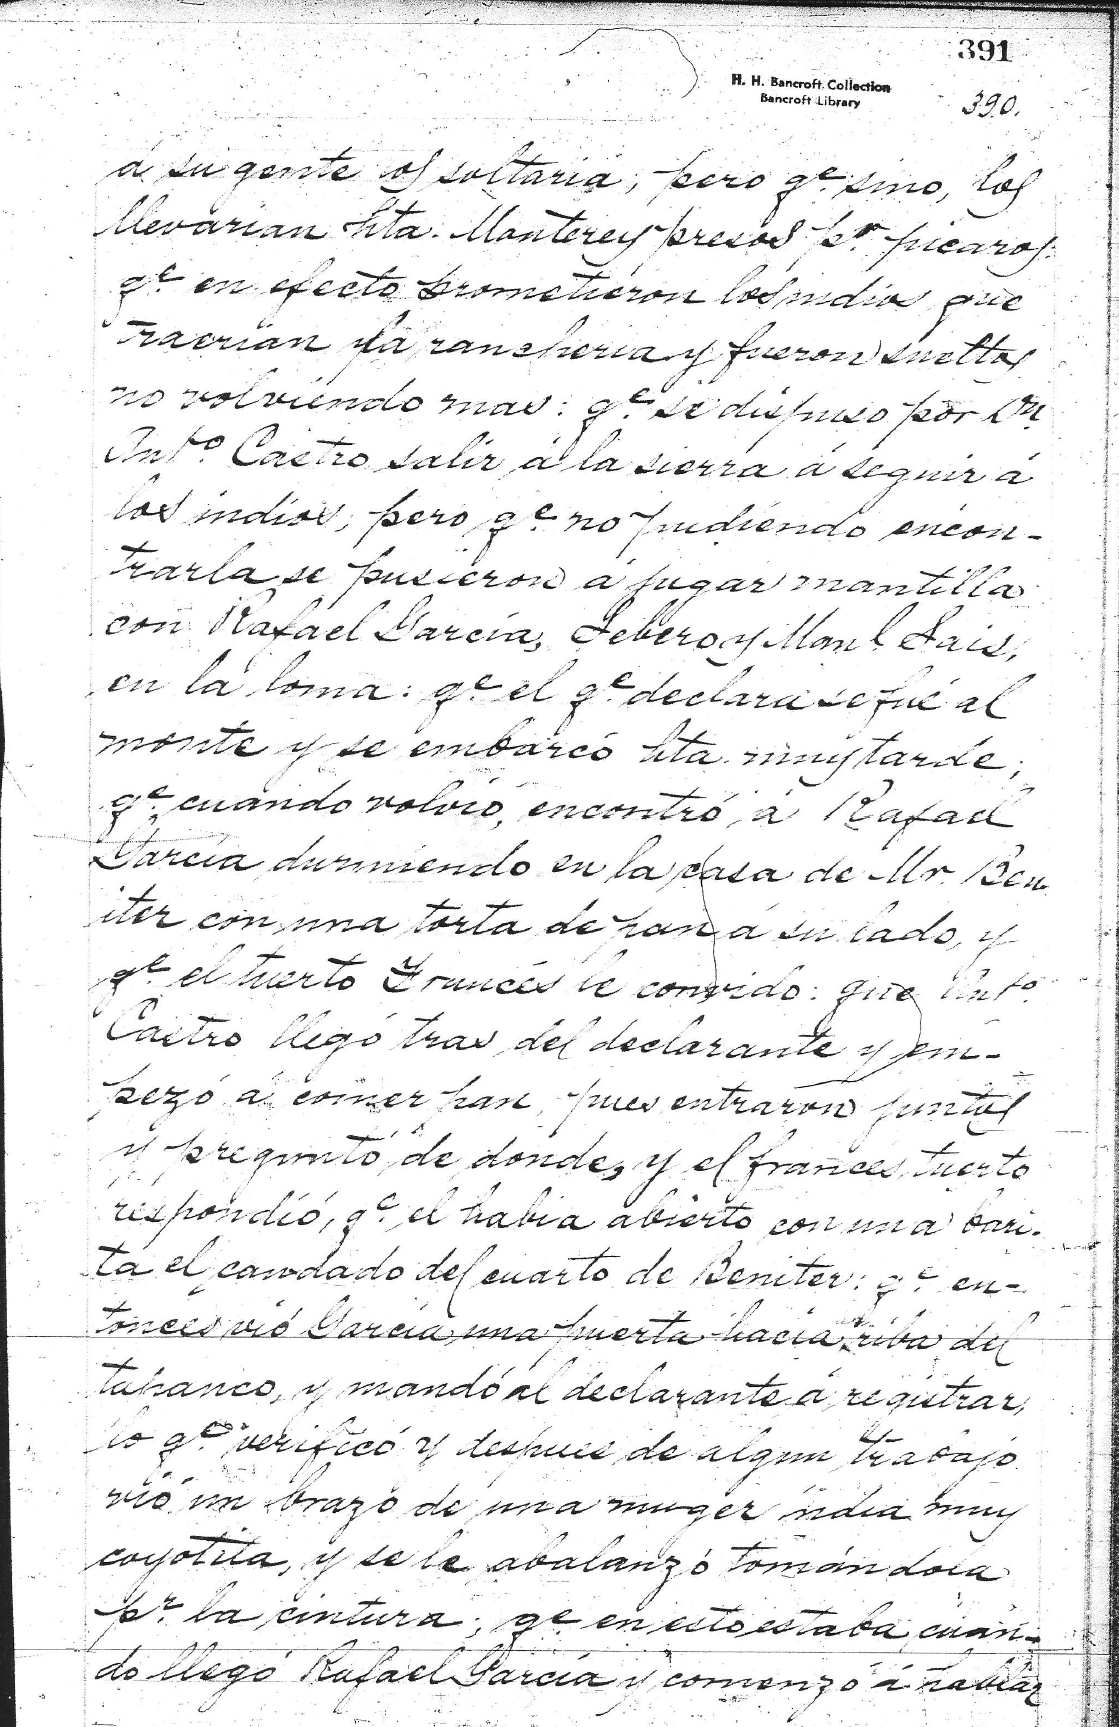 391
H. H. Bancroft Collection
Bancroft Library
390.
á su gente los soltaria; pero qe. sino, los
llevarian hta. Monterey presos pr. picaros:
qe. en efecto prometieron los indios que
traerian la rancheria y fueron sueltos
no volviendo mas: qe. se dispuso por Dn.
Anto. Castro salir á la sierra á seguir á
los indios; pero qe. no pudiendo encon-
trarla se pusieron á jugar mantilla
con Rafael Garcia, Sebero y Manl. Sais,
en la loma: qe. el qe. declara se fué al
monte y se embarcó hta. muy tarde;
qe. cuando volvió, encontró á Rafael
Garcia durmiendo en la casa de Mr. Ben
iter con una torta de pan á su lado, y
qe. el tuerto Frances le convido: que Anto.
Castro llegó tras del declarante y em-
pezó á comer pan, pues entraron juntos
y preguntó de donde, y el frances tuerto
respondió, qe. el habia abierto con una bari-
ta el candado del cuarto de Beniter: qe. en-
tonces vió Garcia una puerta hacia riba del
tapanco, y mandó al declarante á registrar,
lo qe. verificó y despues de algun trabajo
vió un brazo de una muger india muy
coyotita, y se le abalanzó tomándola
pr. la cintura; qe. en esto estaba cuan-
do llegó Rafael Garcia y comenzó á hablar